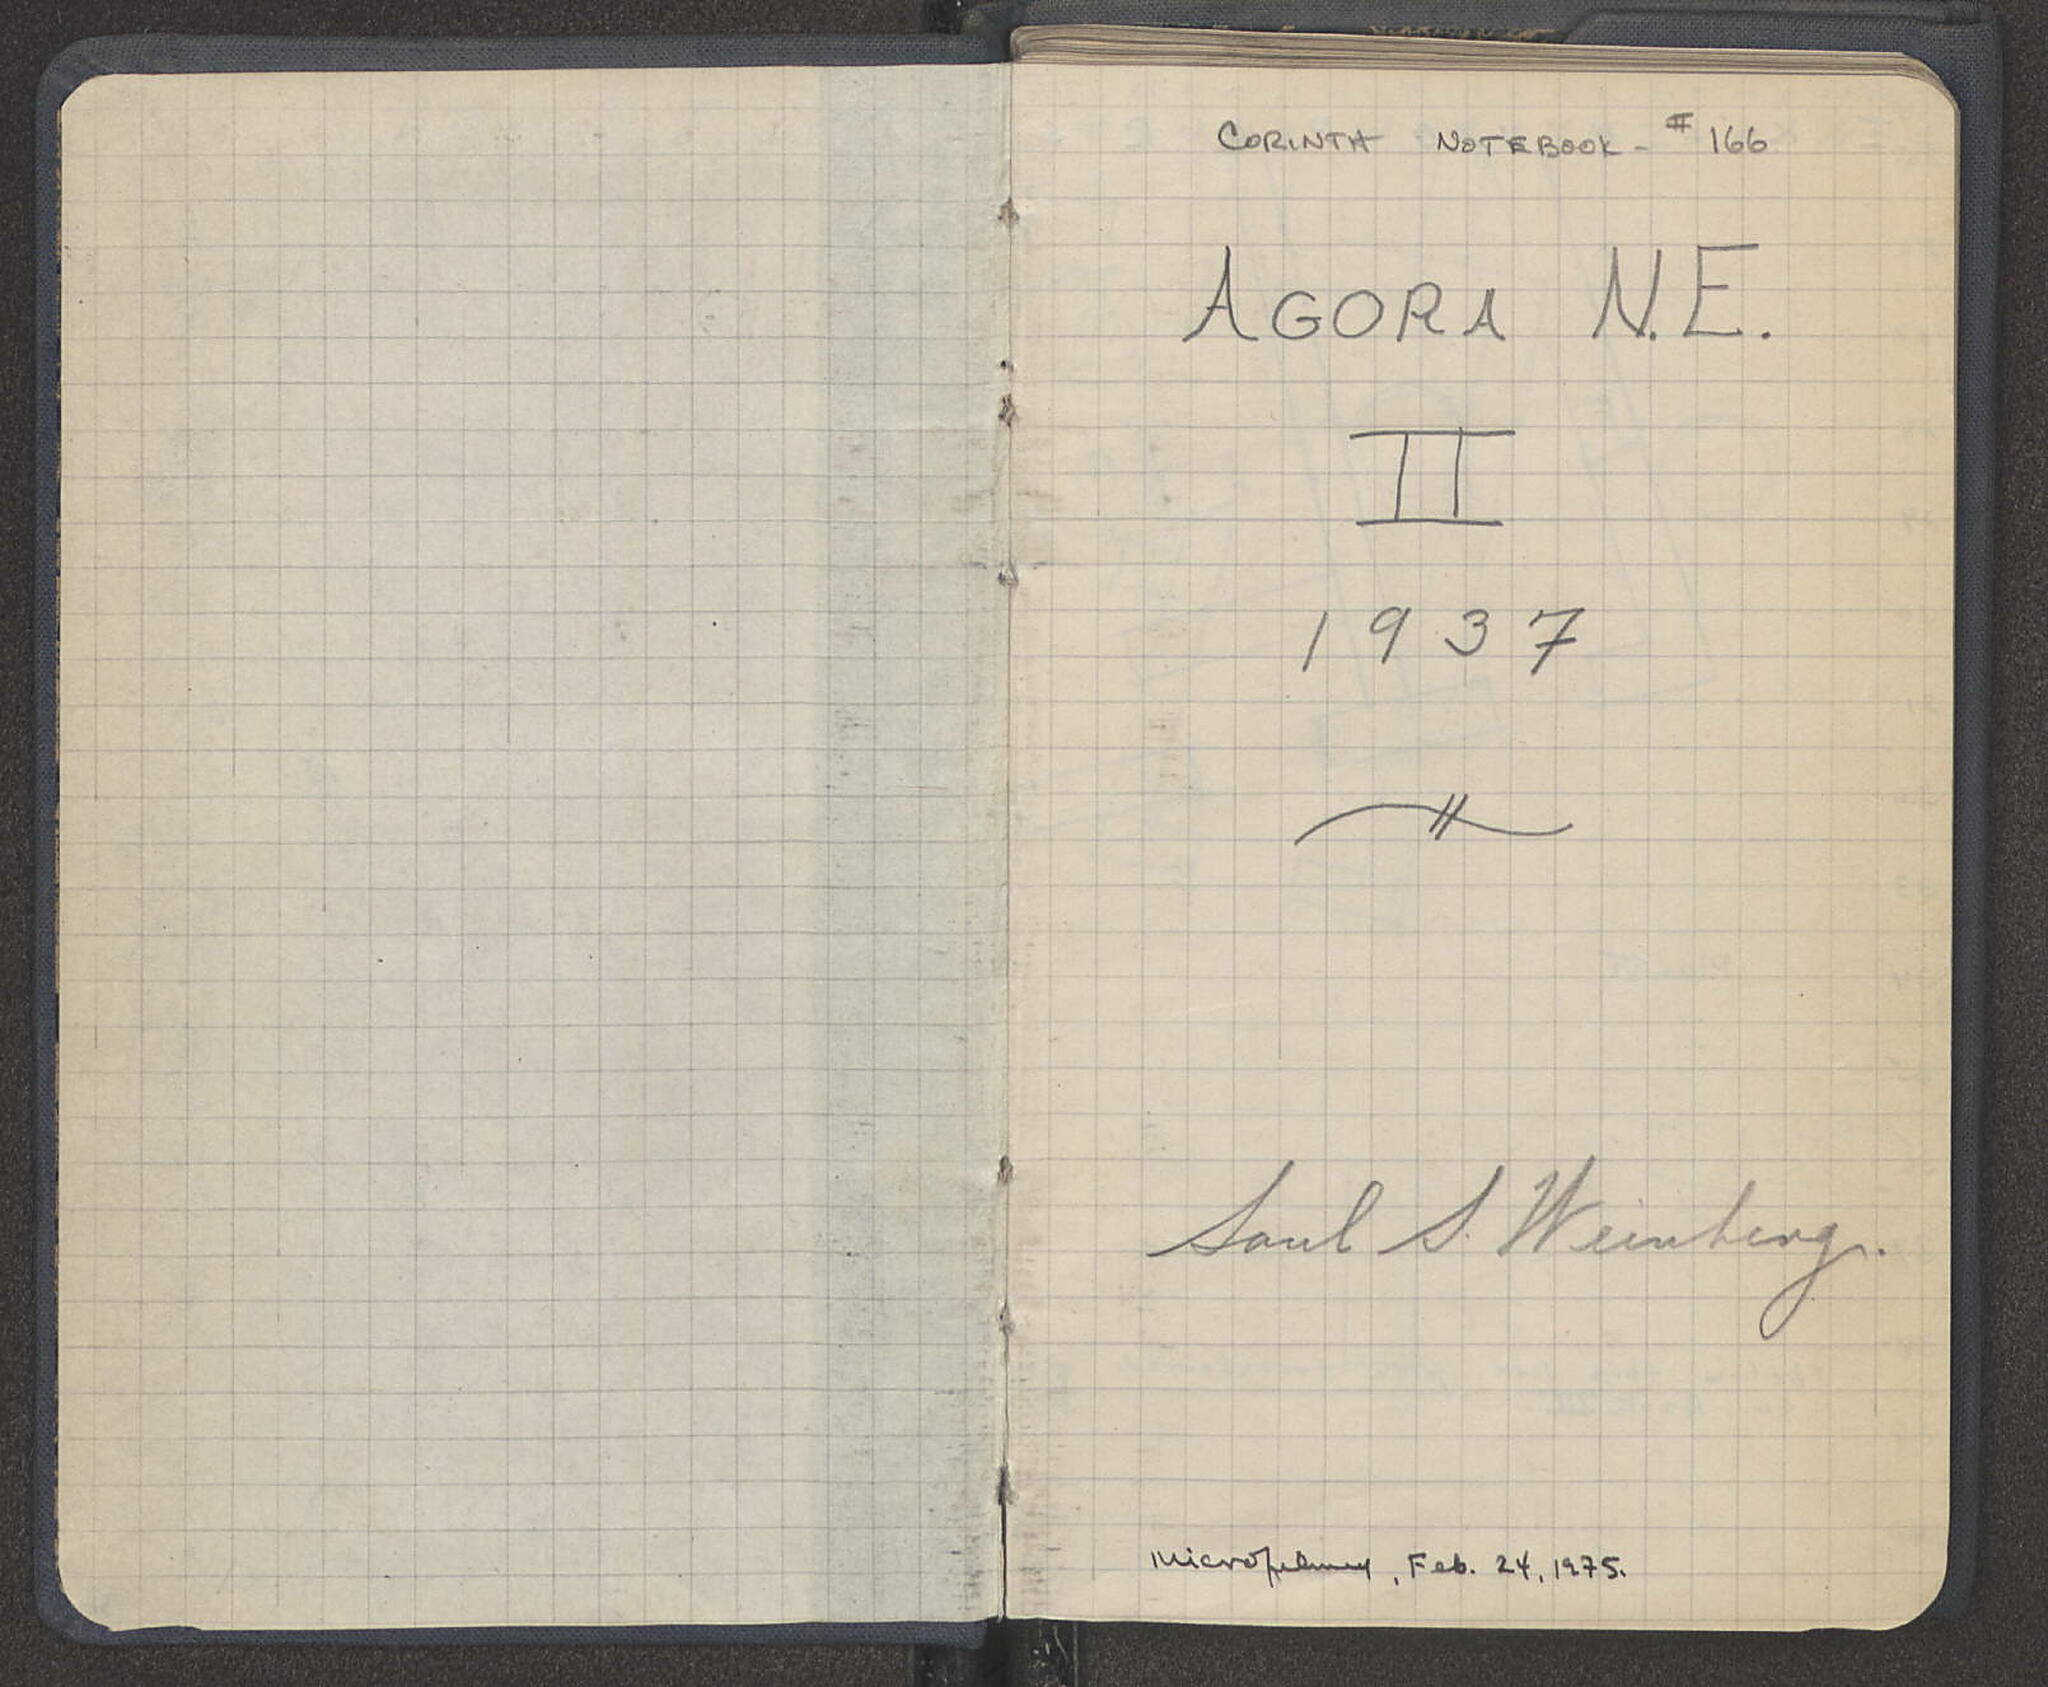 CORINTH NOTEBOOK - # 166
AGORA N.E.
II
1937
Saul S. Weinberg.
Microfilmed, Feb. 24, 1975.